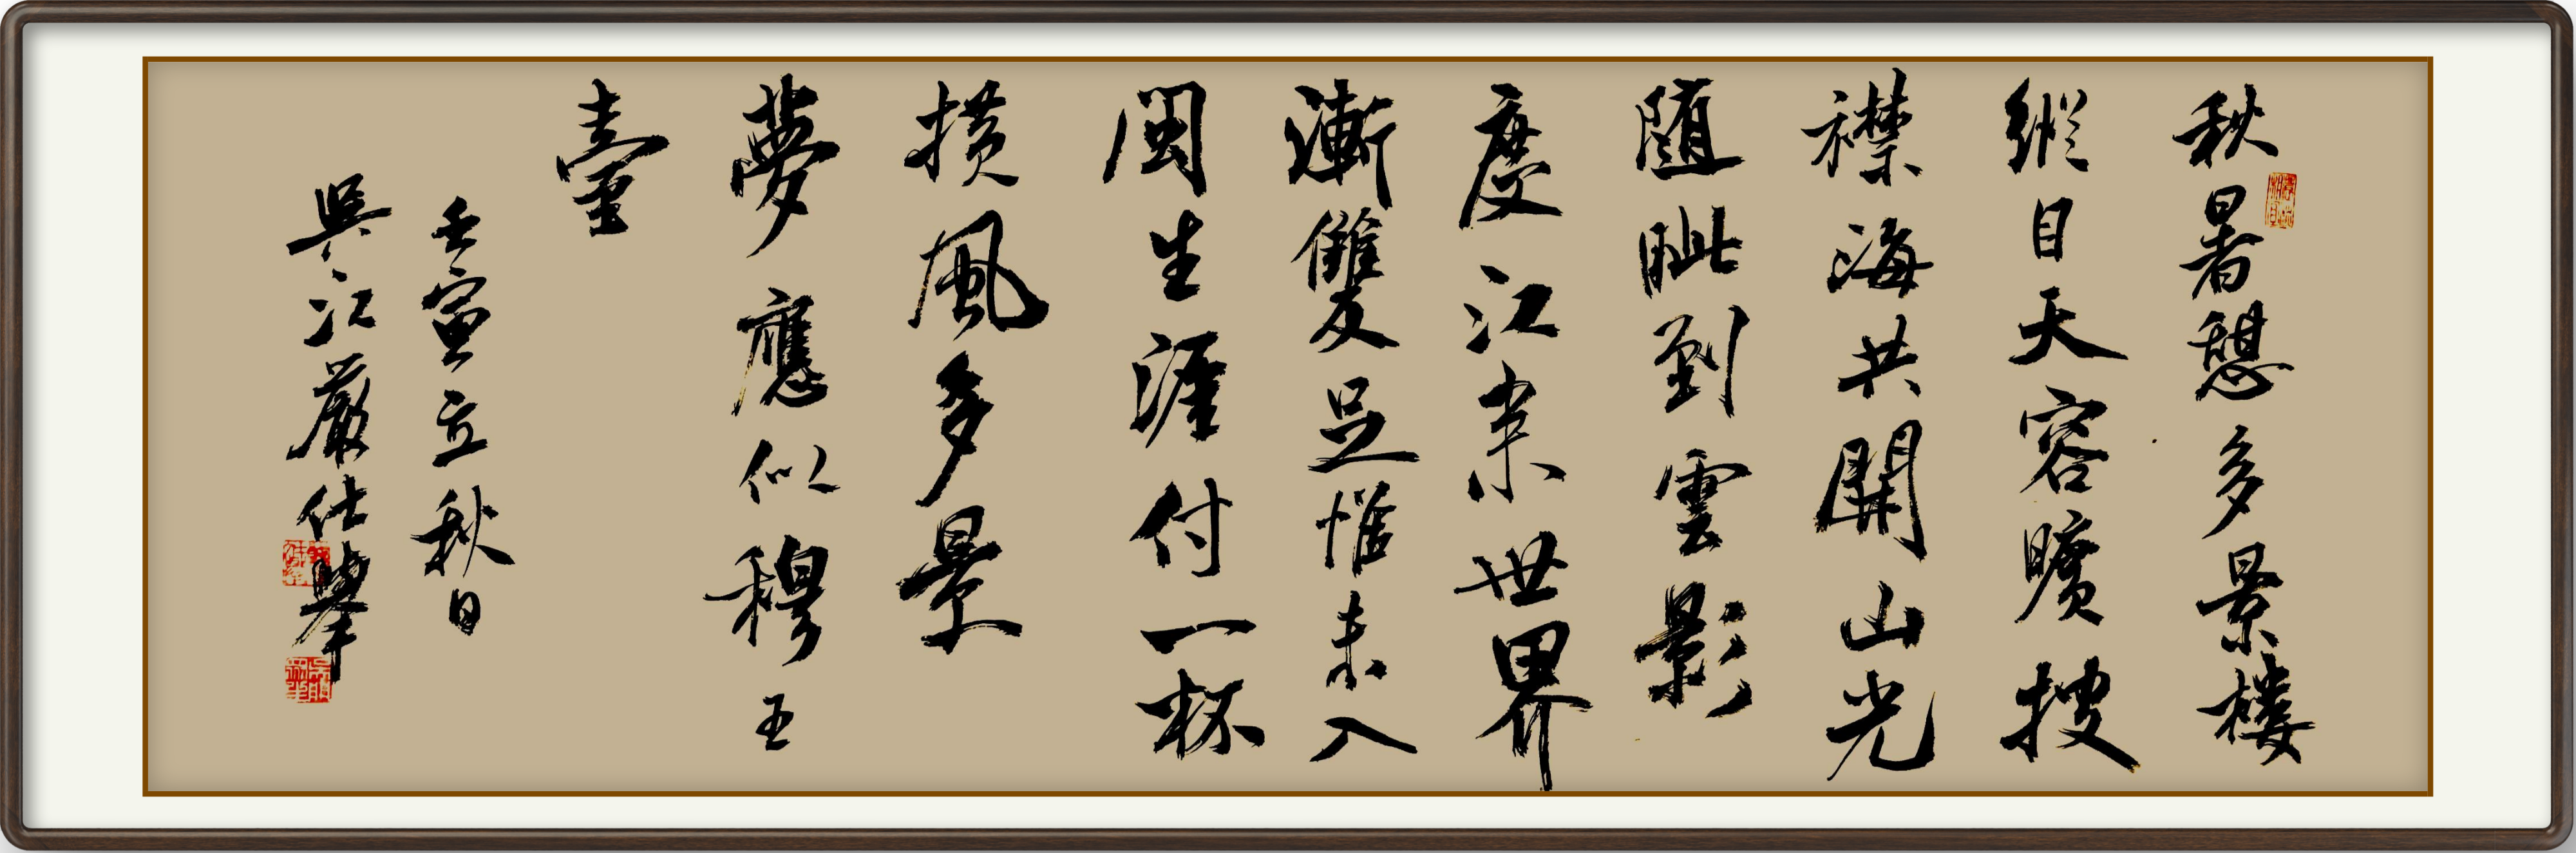 秋暑憩多景樓
縱目天容曠披
襟海共開山光
隨眦到雲影
度江来世界
漸雙足惟未入
閩生涯付一杯
横風多景
夢應似穆王
臺
壬寅立秋日
吳江嚴仕舉